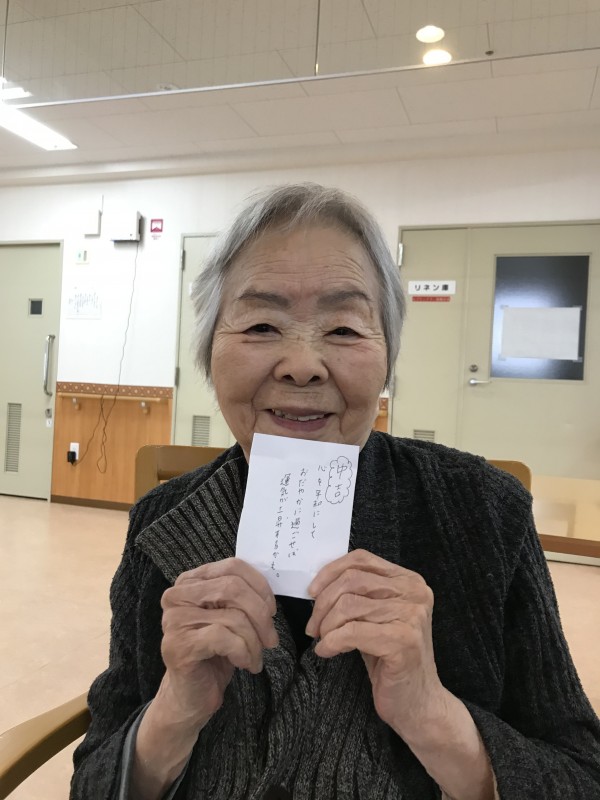 中吉
心を平和にして
おだやかに過ごせば
運気が上昇するかも。
リネン庫